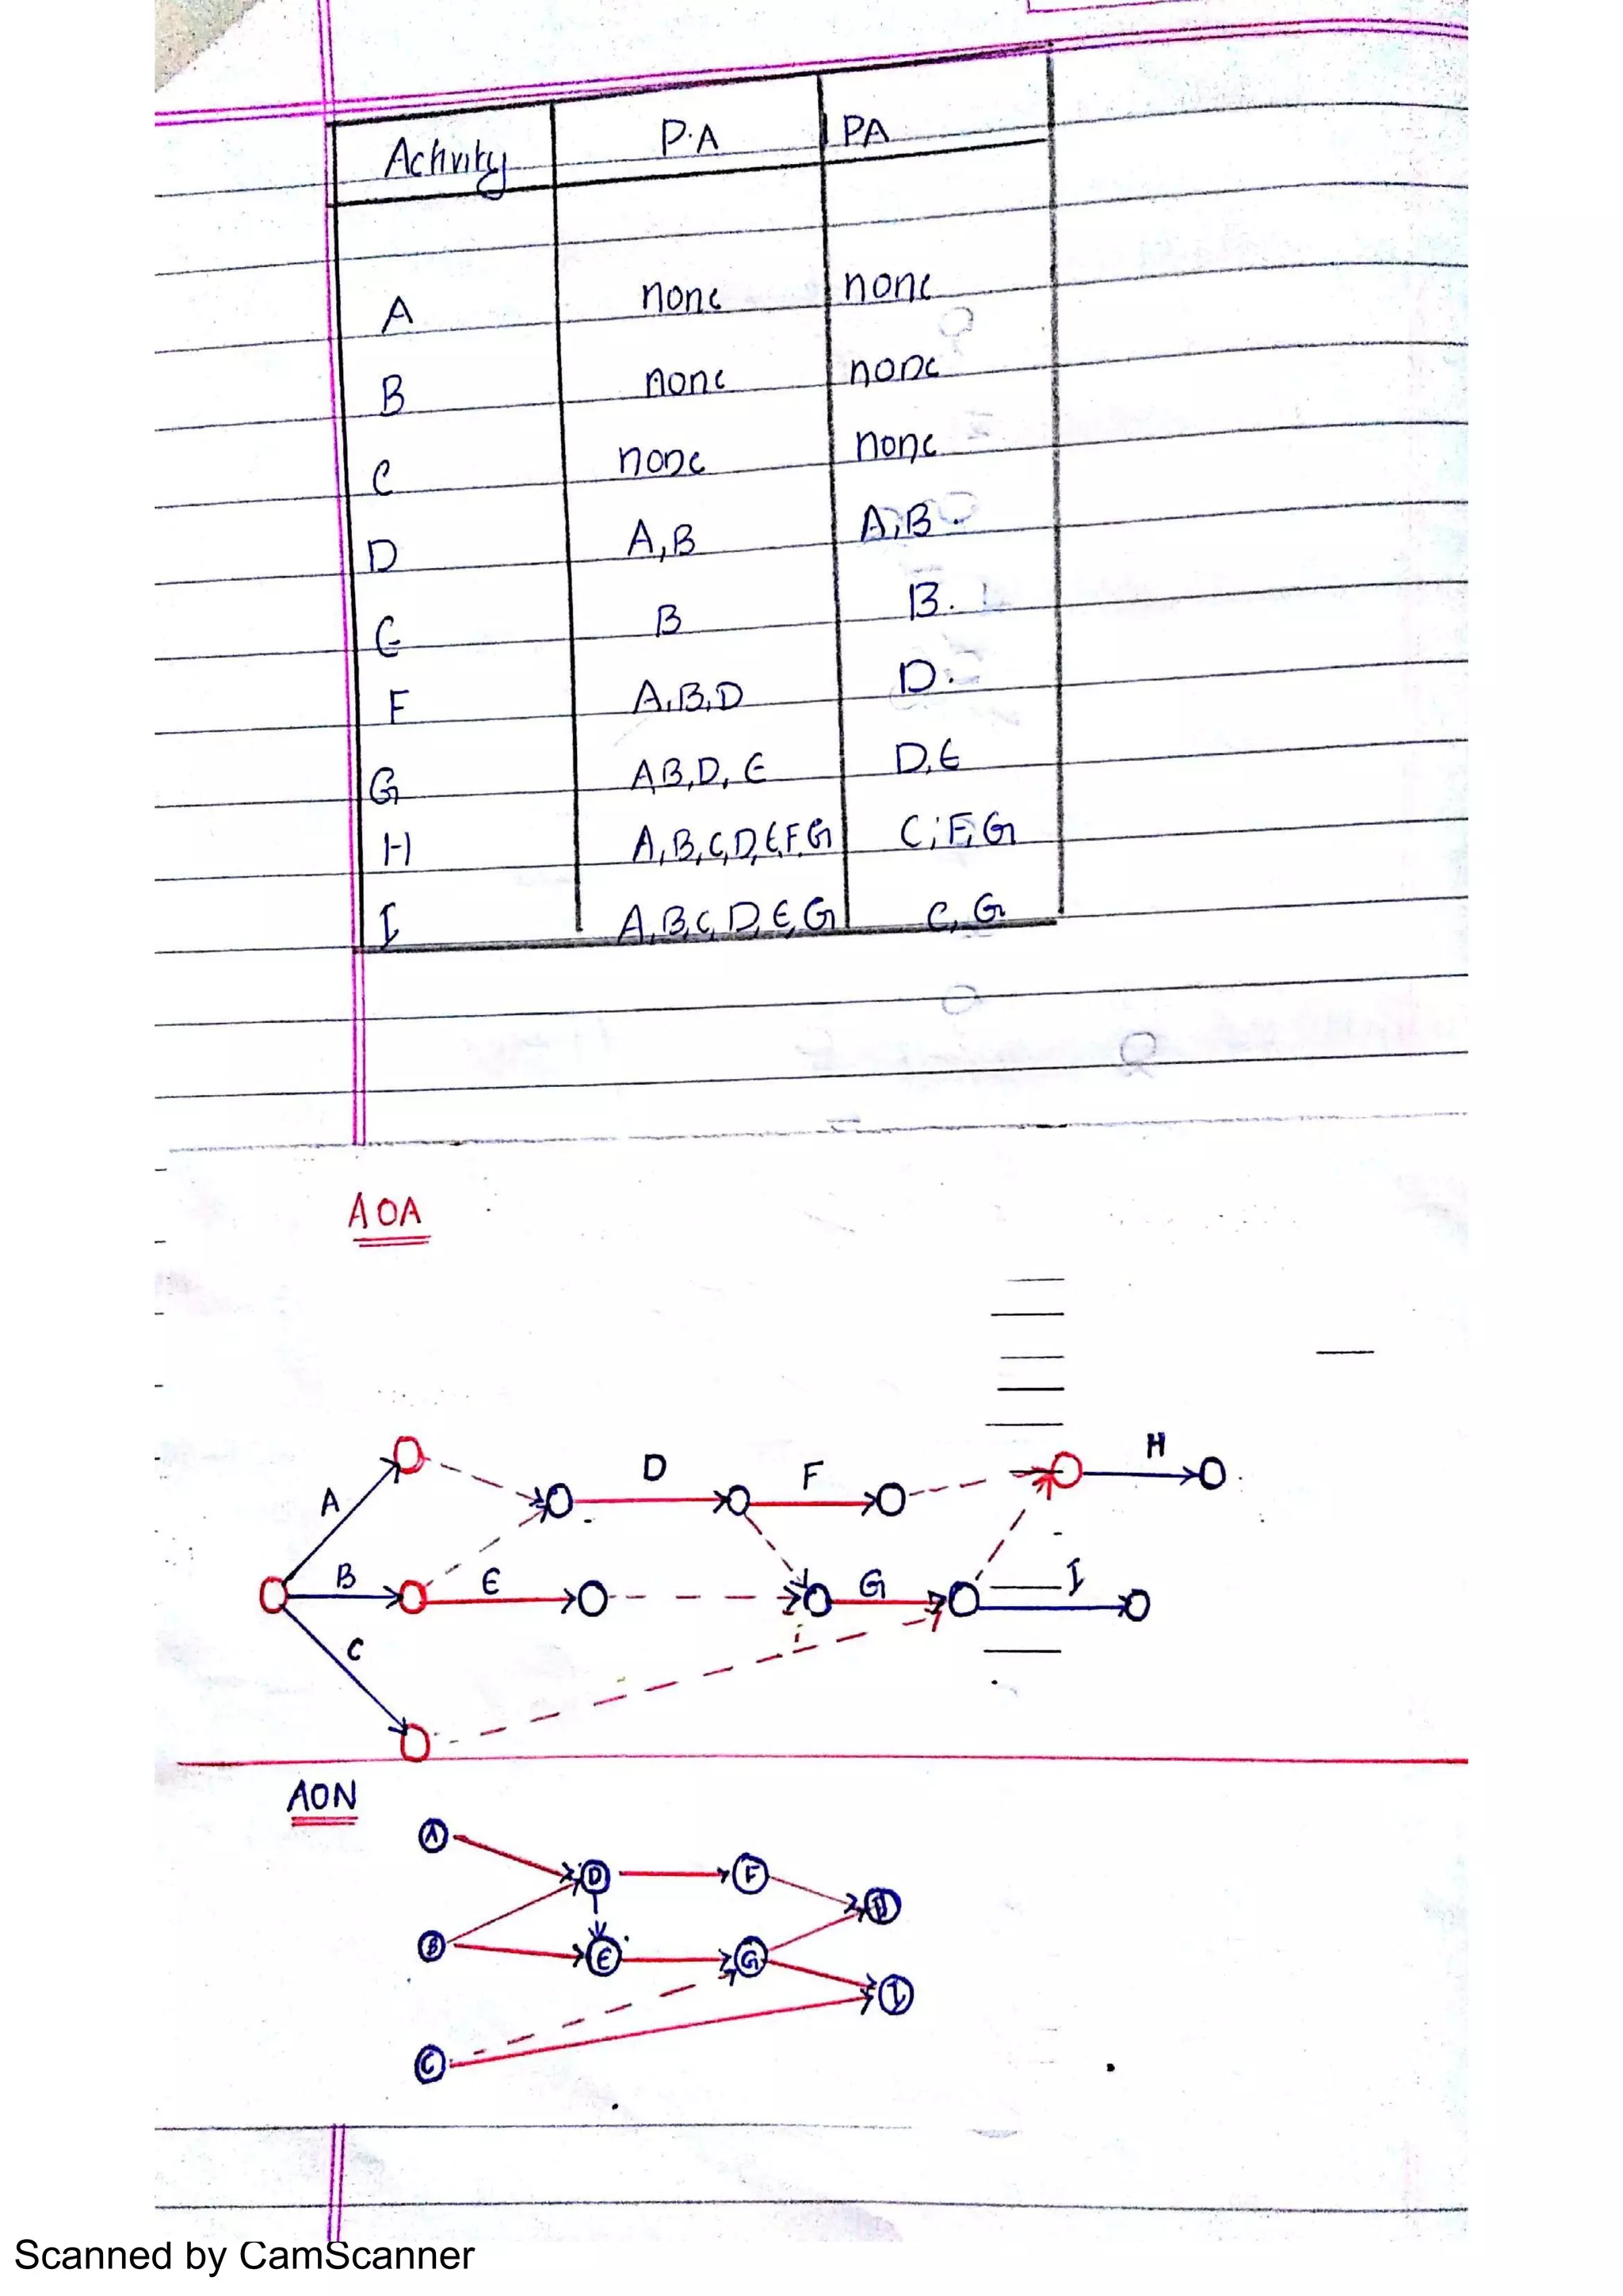 Activity P.A PA
A none none
B none none
C none none
D A,B A,B.
E B B.
F A,B,D D.
G A,B,D, E D,E
H A,B,C,D,E,F,G C,F,G
I A,B,C,D,E,G C,G
AOA
H
D F
A
B E G I
C
AON
A
D F
H
B
E G
I
C
Scanned by CamScanner